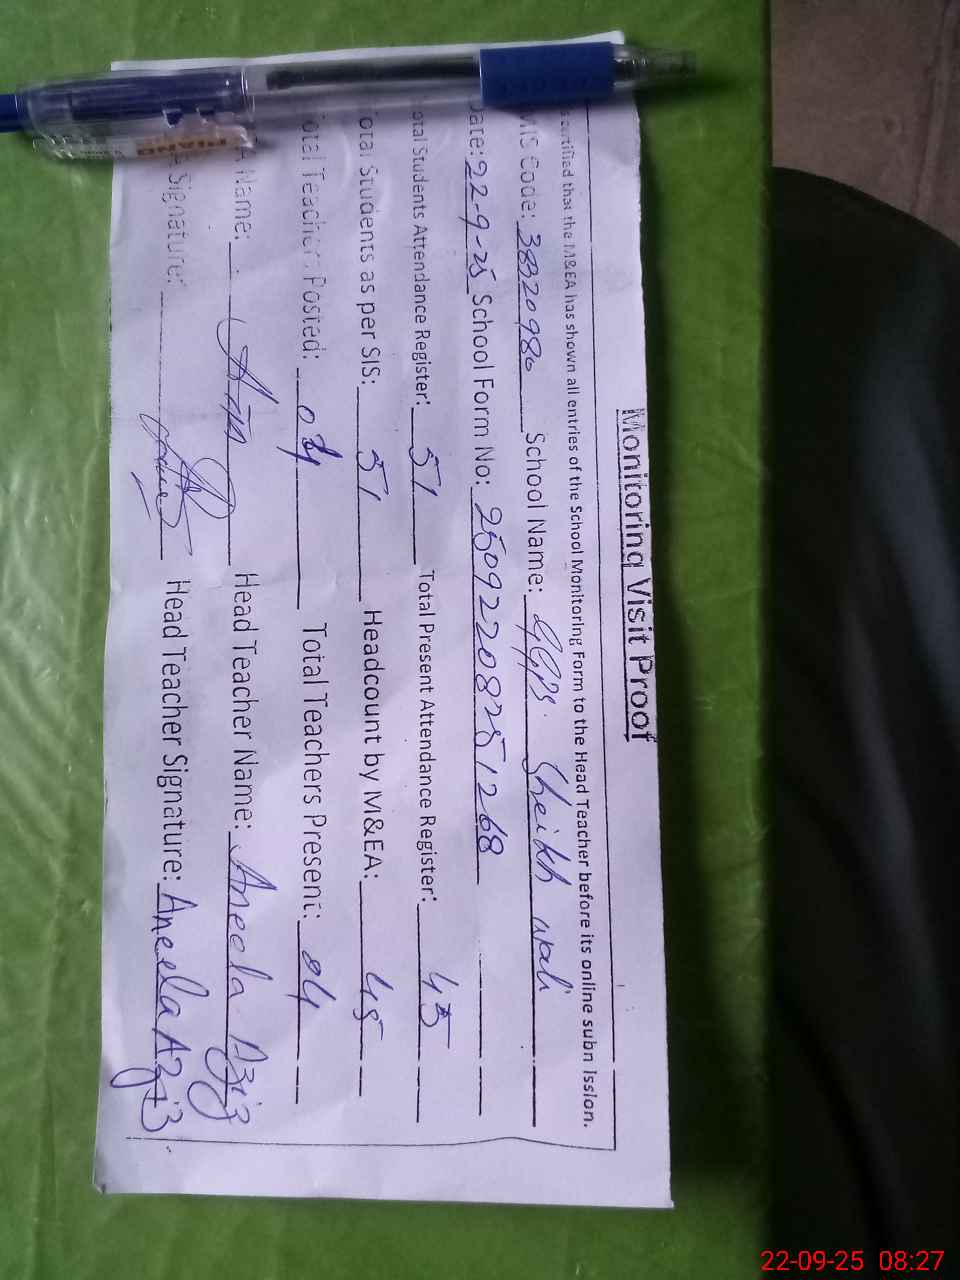 Monitoring Visit Proof
certified that the M&EA has shown all entries of the School Monitoring Form to the Head Teacher before its online subn ission.
MIS Code: 38320980 School Name: GGPS. Sheikh wali
Date: 22-9-25 School Form No: 25092208251268
otal Students Attendance Register: 51 Total Present Attendance Register: 45
otal Students as per SIS: 51 Headcount by M&EA: 45
otal Teachers Posted: 04 Total Teachers Present: 04
A Name: Head Teacher Name: Aneela Aziz
A Signature: Head Teacher Signature: Aneela Aziz
PIANO
22-09-25 08:27